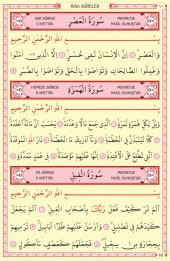 KISA SÛRELER
ASR SÛRESİ
3 AYETTİR
سُورَةُ الْعَصْرِ
MEKKE'DE
NAZİL OLMUŞTUR
بِسْمِ اللّٰهِ الرَّحْمٰنِ الرَّحِيمِ
وَالْعَصْرِ اِنَّ الْاِنْسَانَ لَفِى خُسْرٍ اِلَّا الَّذِينَ اٰمَنُوا
وَعَمِلُوا الصَّالِحَاتِ وَتَوَاصَوْا بِالْحَقِّ وَتَوَاصَوْا بِالصَّبْرِ
HÜMEZE SÛRESİ
9 AYETTİR
سُورَةُ الْهُمَزَةِ
MEKKE'DE
NAZİL OLMUŞTUR
بِسْمِ اللّٰهِ الرَّحْمٰنِ الرَّحِيمِ
وَيْلٌ لِكُلِّ هُمَزَةٍ لُمَزَةٍ اَلَّذِى جَمَعَ مَالًا وَعَدَّدَهُ يَحْسَبُ اَنَّ مَالَهُ اَخْلَدَهُ
كَلَّا لَيُنْبَذَنَّ فِى الْحُطَمَةِ وَمَا اَدْرٰيكَ مَا الْحُطَمَةُ نَارُ اللّٰهِ الْمُوقَدَةُ
اَلَّتِى تَطَّلِعُ عَلَى الْاَفْئِدَةِ اِنَّهَا عَلَيْهِمْ مُؤْصَدَةٌ فِى عَمَدٍ مُمَدَّدَةٍ
FİL SÛRESİ
5 AYETTİR
سُورَةُ الْفِيلِ
MEKKE'DE
NAZİL OLMUŞTUR
بِسْمِ اللّٰهِ الرَّحْمٰنِ الرَّحِيمِ
اَلَمْ تَرَ كَيْفَ فَعَلَ رَبُّكَ بِاَصْحَابِ الْفِيلِ اَلَمْ يَجْعَلْ
كَيْدَهُمْ فِى تَضْلِيلٍ وَاَرْسَلَ عَلَيْهِمْ طَيْرًا اَبَابِيلَ تَرْمِيهِمْ
بِحِجَارَةٍ مِنْ سِجِّيلٍ فَجَعَلَهُمْ كَعَصْفٍ مَاْكُولٍ